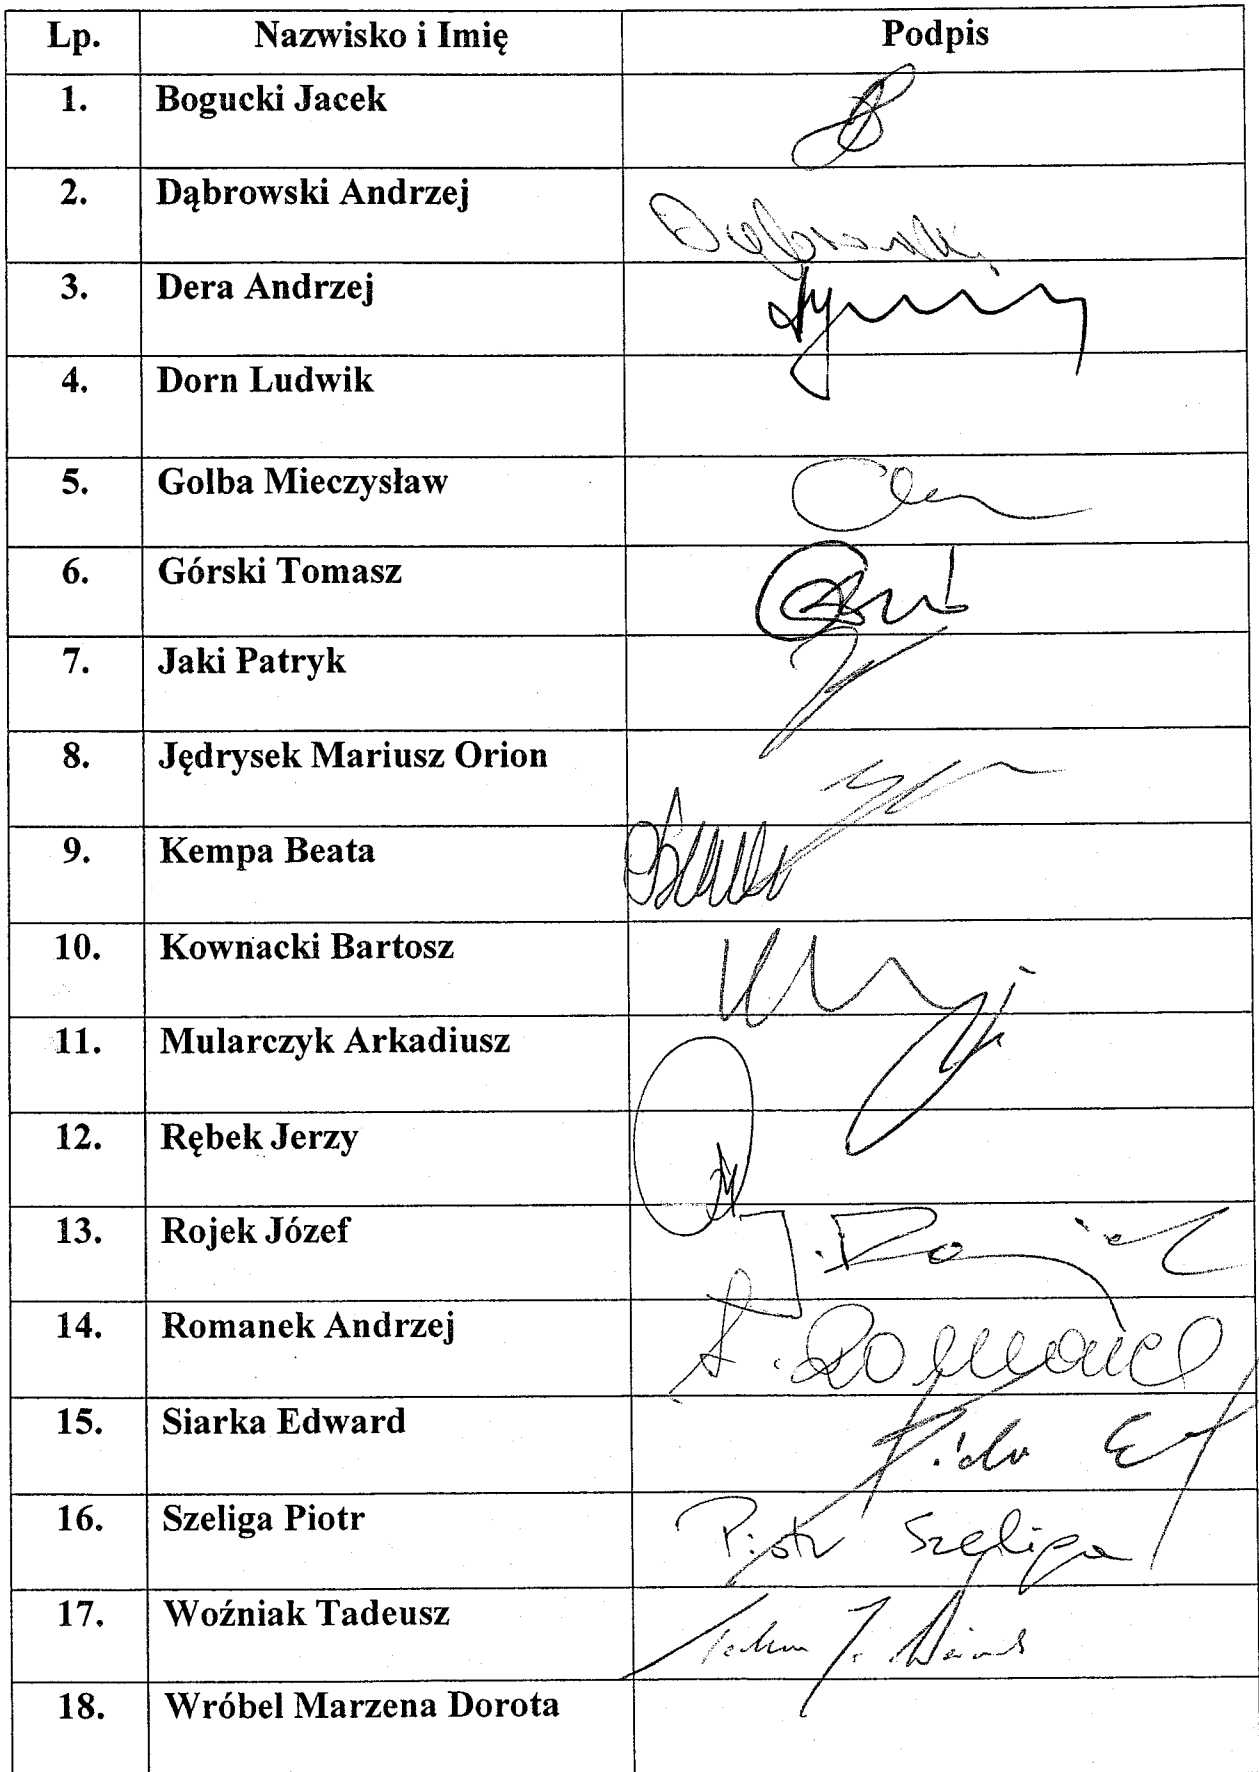 Lp. Nazwisko i Imię Podpis
1. Bogucki Jacek
2. Dąbrowski Andrzej Dąbrowski
3. Dera Andrzej
4. Dorn Ludwik
5. Golba Mieczysław
6. Górski Tomasz
7. Jaki Patryk
8. Jędrysek Mariusz Orion
9. Kempa Beata
10. Kownacki Bartosz
11. Mularczyk Arkadiusz
12. Rębek Jerzy
13. Rojek Józef J. Rojek
14. Romanek Andrzej A. Romanek
15. Siarka Edward
16. Szeliga Piotr Piotr Szeliga
17. Woźniak Tadeusz
18. Wróbel Marzena Dorota